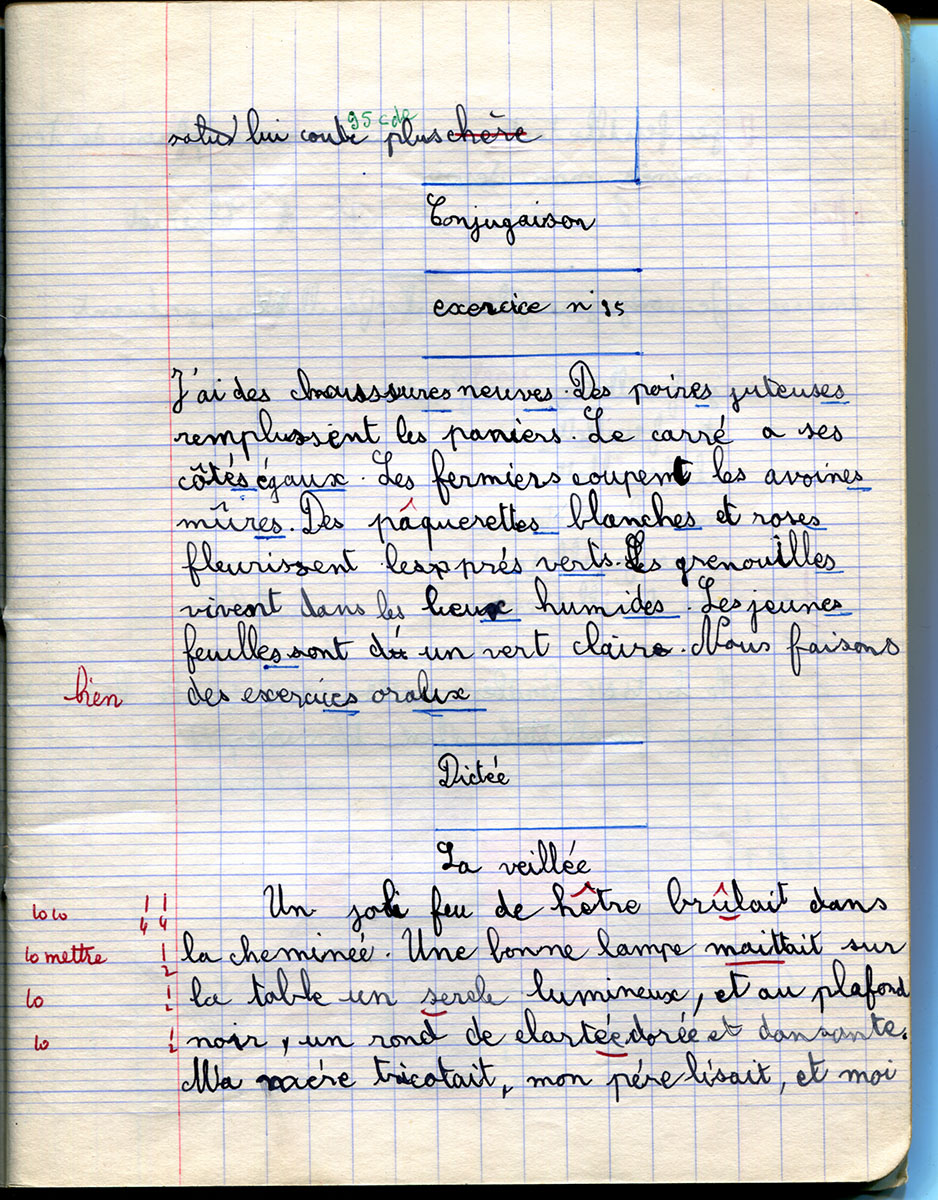 lui coute plus chère
Conjugaison
exercice n° 95
J'ai des chousssures neuves. Des poires juteuses
remplussent les paniers. Le carré a ses
côtés égaux. Les fermiers coupent les avoines
mûres. Des pâquerettes blanches et roses
fleurissent les prés verts. Les grenouilles
vivent dans les lieux humides. Les jeunes
feuilles sont d'un vert claire. Nous faisons
bien des exercices oraux
Dictée
La veillée
Un joli feu de hêtre brûlait dans
mettre la cheminée. Une bonne lampe maittait sur
la table un sercle lumineux, et au plafond
noir, un rond de clartée dorée et dansante.
Ma mére tricotait, mon pére lisait, et moi